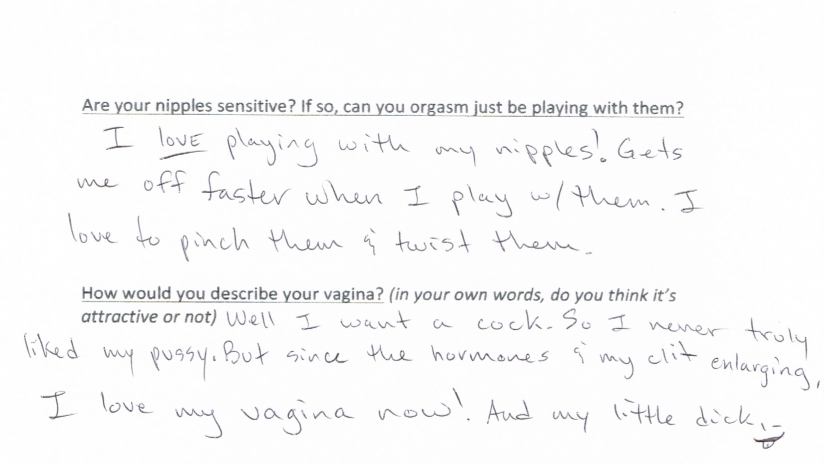 Are your nipples sensitive? If so, can you orgasm just be playing with them?
I LOVE playing with my nipples! Gets
me off faster when I play w/ them. I
love to pinch them & twist them.
How would you describe your vagina? (in your own words, do you think it's
attractive or not) Well I want a cock. So I never truly
liked my pussy. But since the hormones & my clit enlarging,
I love my vagina now! And my little dick.